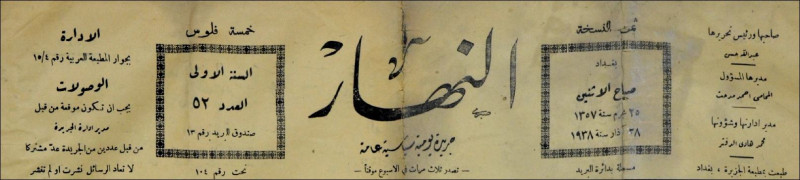 صاحبها ورئيس تحريرها
عبدالله حسن
مديرها المسؤول
المحامي احمد مدحت
مدير ادارتها وشؤونها
محمد هادي الدفتر
طبعت بمطبعة الجزيرة ، بغداد
ثمن النسخة
بغداد
صباح الاثنين
٢٥ محرم سنة ١٣٥٧
٢٨ آذار سنة ١٩٣٨
مسجلة بدائرة البريد
النهار
جريدة يومية سياسية عامة
— تصدر ثلاث مرات في الاسبوع موقتاً —
خمسة فلوس
السنة الاولى
العدد ٥٢
صندوق البريد رقم ١٣
تحت رقم ١٠٤
الادارة
بجوار المطبعة العربية رقم ١٥/٤
الوصولات
يجب ان تكون موقعة من قبل
مدير ادارة الجريدة
من قبل عددين من الجريدة عد مشتركا
لا تعاد الرسائل نشرت او لم تنشر